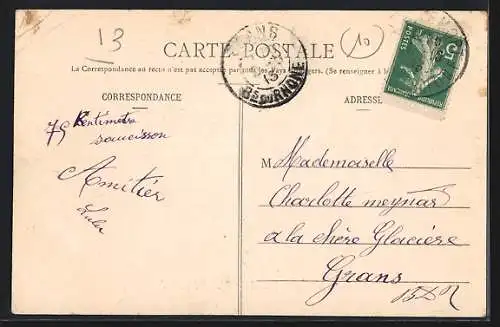 13
CARTE POSTALE
10
La Correspondance au recto n'est pas acceptée par
(Se renseigner à
CORRESPONDANCE
ADRESSE
GRANS
13
BES DU RHONE
5
75 Centimetre
saucisson
Amitiés
M Mademoiselle
Charlotte meynas
a la chère Glacière
Grans
BDR